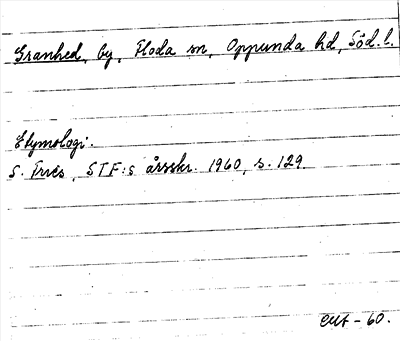 Granhed, by, Floda sn, Oppunda hd, Söd.l.
Etymologi.
S. Fries, STF:s årsskr. 1960, s. 129
-60.